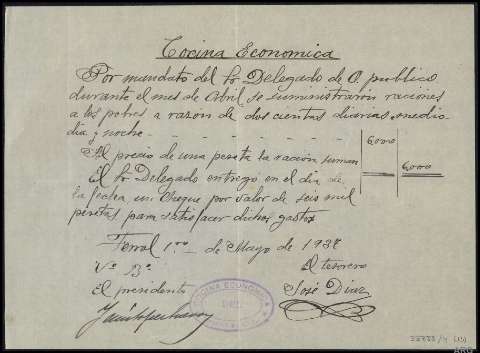 Cocina Economica
Por mandato del Sr. Delegado de O. publico
durante el mes de Abril se suministraron raciones
a los pobres a razon de dos cientas diarias, medio-
dia y noche - - - - - - - - 6000
Al precio de una peseta la ración suman 6000
El Sr. Delegado entregó en el dia de
la fecha un cheque por valor de seis mil
pesetas para satisfacer dichos gastos
Ferrol 1º - de Mayo de 1938
Vº Bº El tesorero
El presidente José Diaz
COCINA ECONOMICA